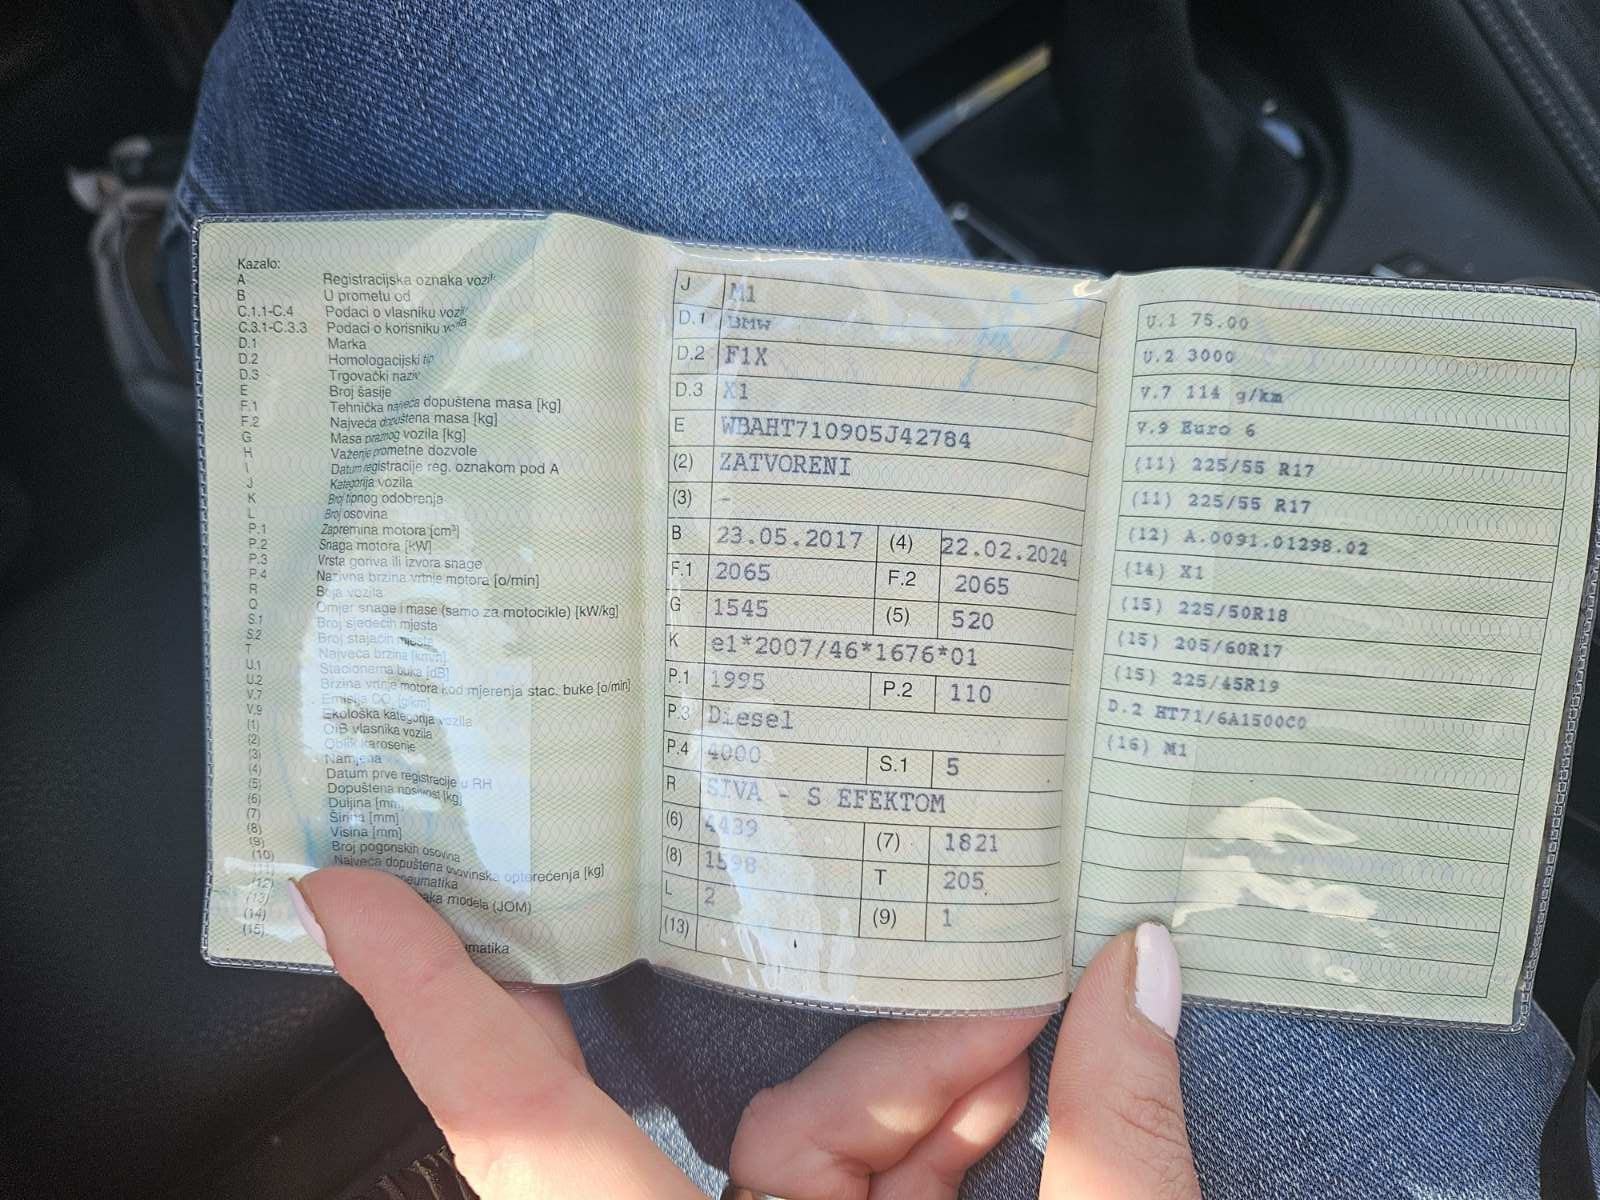 Kazalo:
A Registracijska oznaka vozil
B U prometu od
C.1.1-C.4 Podaci o vlasniku vozil
C.3.1-C.3.3 Podaci o korisniku vozila
D.1 Marka
D.2 Homologacijski tip
D.3 Trgovački naziv
E Broj šasije
F.1 Tehnička najveća dopuštena masa [kg]
F.2 Najveća dopuštena masa [kg]
G Masa praznog vozila [kg]
H Važenje prometne dozvole
I Datum registracije reg. oznakom pod A
J Kategorija vozila
K Broj tipnog odobrenja
L Broj osovina
P.1 Zapremina motora [cm³]
P.2 Snaga motora [kW]
P.3 Vrsta goriva ili izvora snage
P.4 Nazivna brzina vrtnje motora [o/min]
R Boja vozila
Q Omjer snage i mase (samo za motocikle) [kW/kg]
S.1 Broj sjedećih mjesta
S.2 Broj stajaćih mjesta
T Najveća brzina [km/h]
U.1 Stacionarna buka [dB]
U.2 Brzina vrtnje motora kod mjerenja stac. buke [o/min]
V.7 Emisija CO₂ [g/km]
V.9 Ekološka kategorija vozila
(1) OIB vlasnika vozila
(2) Oblik karoserije
(3) Namjena
(4) Datum prve registracije u RH
(5) Dopuštena nosivost [kg]
(6) Duljina [mm]
(7) Širina [mm]
(8) Visina [mm]
(9) Broj pogonskih osovina
(10) Najveća dopuštena osovinska opterećenja [kg]
neumatika
(12) aka modela (JOM)
(13)
(14)
(15) umatika
J M1
D.1 BMW
D.2 F1X
D.3 X1
E WBAHT710905J42784
(2) ZATVORENI
(3) -
B 23.05.2017 (4) 22.02.2024
F.1 2065 F.2 2065
G 1545 (5) 520
K e1*2007/46*1676*01
P.1 1995 P.2 110
P.3 Diesel
P.4 4000 S.1 5
R SIVA - S EFEKTOM
(6) 4439 (7) 1821
(8) 1598 T 205
L 2 (9) 1
(13)
U.1 75.00
U.2 3000
V.7 114 g/km
V.9 Euro 6
(11) 225/55 R17
(11) 225/55 R17
(12) A.0091.01298.02
(14) X1
(15) 225/50R18
(15) 205/60R17
(15) 225/45R19
D.2 HT71/6A1500C0
(16) M1